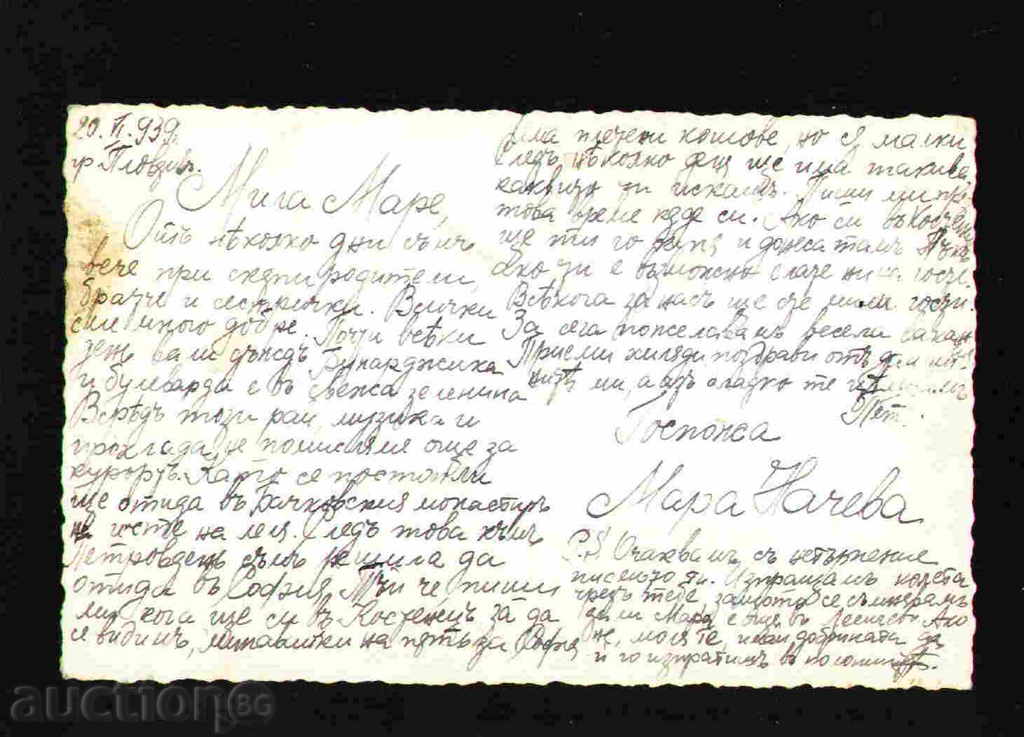 20.VI.939
гр Пловдивъ.
Мила Маре,
Отъ нѣколко дни съмъ
вече при скѫпи родители,
братче и сестрички. Всички
сме много добре. Почти всѣки
день вали дъждъ
и булеварда е въ свежа зеленина
Всрѣдъ този рай, музика и
прохлада, не помислям още за
курортъ. Като се постопли
ще отида въ Бачковския монастиръ
на гости на леля. Следъ това къмъ
Петровдень съмъ решила да
отида въ София, Тъй че пиши
ми кога ще си въ Костенецъ за да
се видимъ, минавайки на пѫть за София
Има плетени кошове, но сѫ малки
Следъ нѣколко дни ще има такива
каквито ти искашъ. Пиши ми
това време кѫде си. Ако си въ Костенецъ
ще ти го купя и донеса тамъ
ако ти е възможно ела че ни на гости
Всѣкога за насъ ще сте мили гости.
За сега пожелавамъ весела
Приеми хиляди поздрави отъ
ми, а азъ сладко те
Пет.
Госпожа
Мара Начева
P.S. Очаквамъ съ нетърпение
писмото ти. Изпращамъ
чрезъ тебе, защото се съмнявамъ
дали Мара е още въ Ако
не, моля те, имай добрината да
й го изпратишъ в
auction.BG